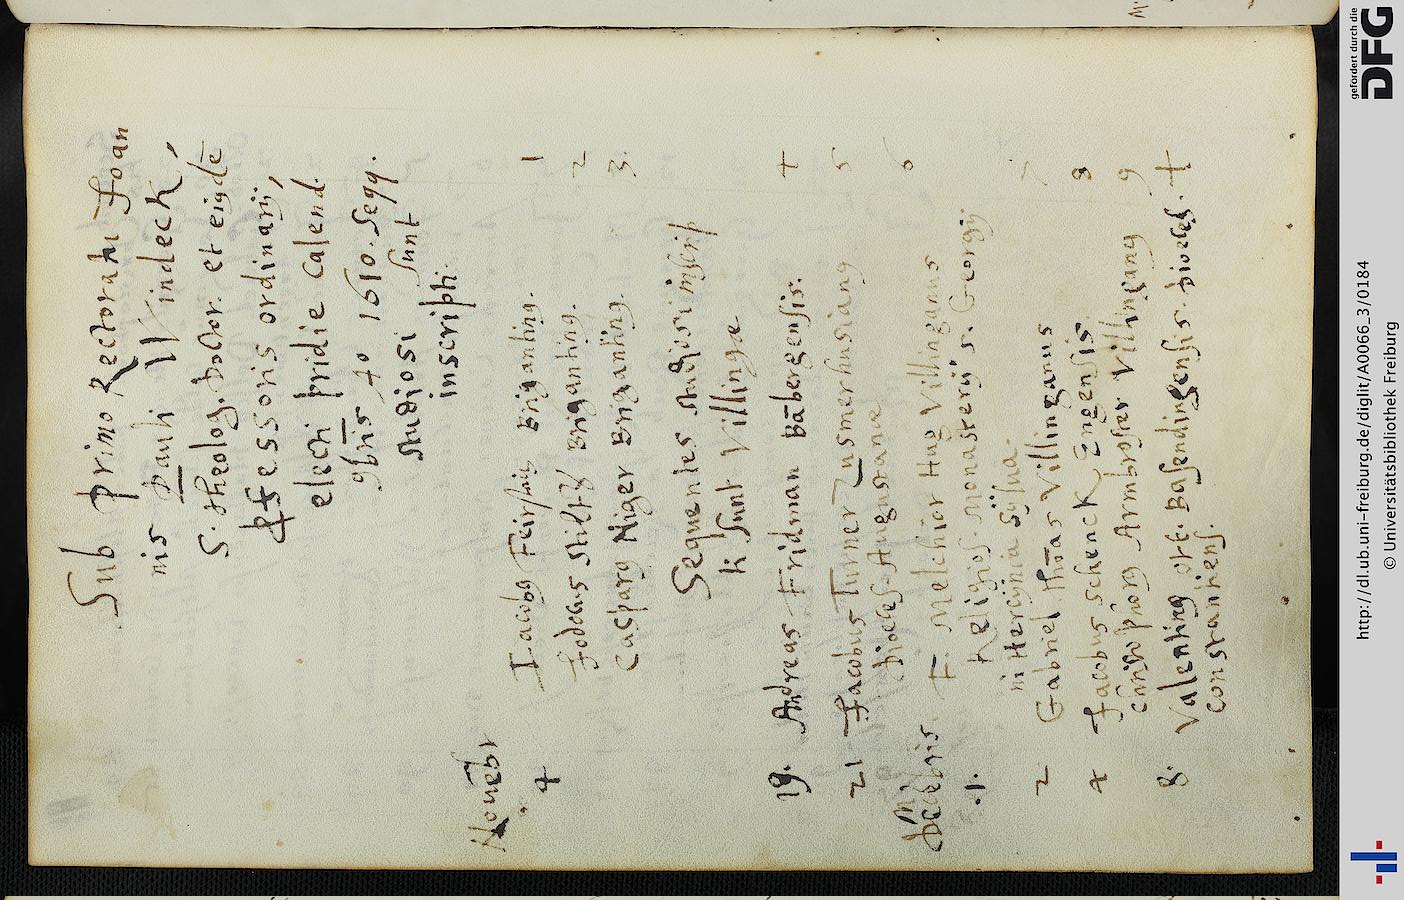 Sub primo Rectoratu Joan
nis Pauli Windeck,
S. Theolog. Doctor. et eiusdē
Professoris ordinarij,
electi pridie Calend.
9bris Ao 1610. Seqq.
studiosi sunt
inscripti.
Nouēbr
4 Iacobq Briganting. 1
Jodocus Stiltz Briganting. 2
Casparq Niger Briganting. 3
Sequentes studiosi inscrip
ti sunt Villingæ
19. Andreas Fridman Bābergensis. 4
21 Jacobus Turner Zusmerhusianq 5
dioeces Augustanæ
Decēbris
.1. F. Melchior Hug Villinganus 6
Religios. Monasterij S. Georgij
in Hercynia Sÿlua.
2 Gabriel Thōas Villinganus 7
4 Jacobus Schenck Engensis 8
Christophorq Armbroster Villinganq 9
8. Valentinq Ort. Basendingensis dioeces. +
Constantiens.
gefördert durch die
DFG
http://dl.ub.uni-freiburg.de/diglit/A0066_3/0184
© Universitätsbibliothek Freiburg